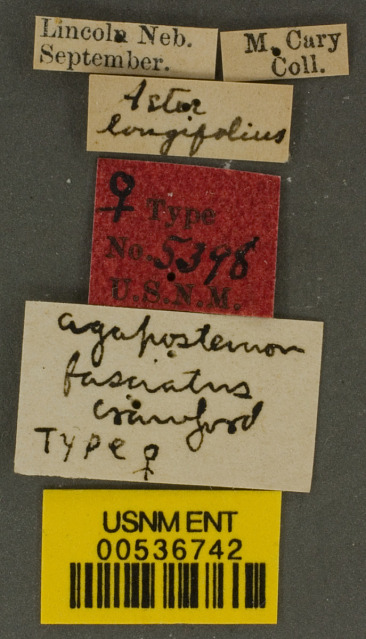 Lincoln Neb.
September.
M. Cary
Coll.
Aster
longifolius
♀ Type
No. 5398
U.S.N.M.
Agapostemon
fasciatus
Crawford
Type ♀
USNM ENT
00536742